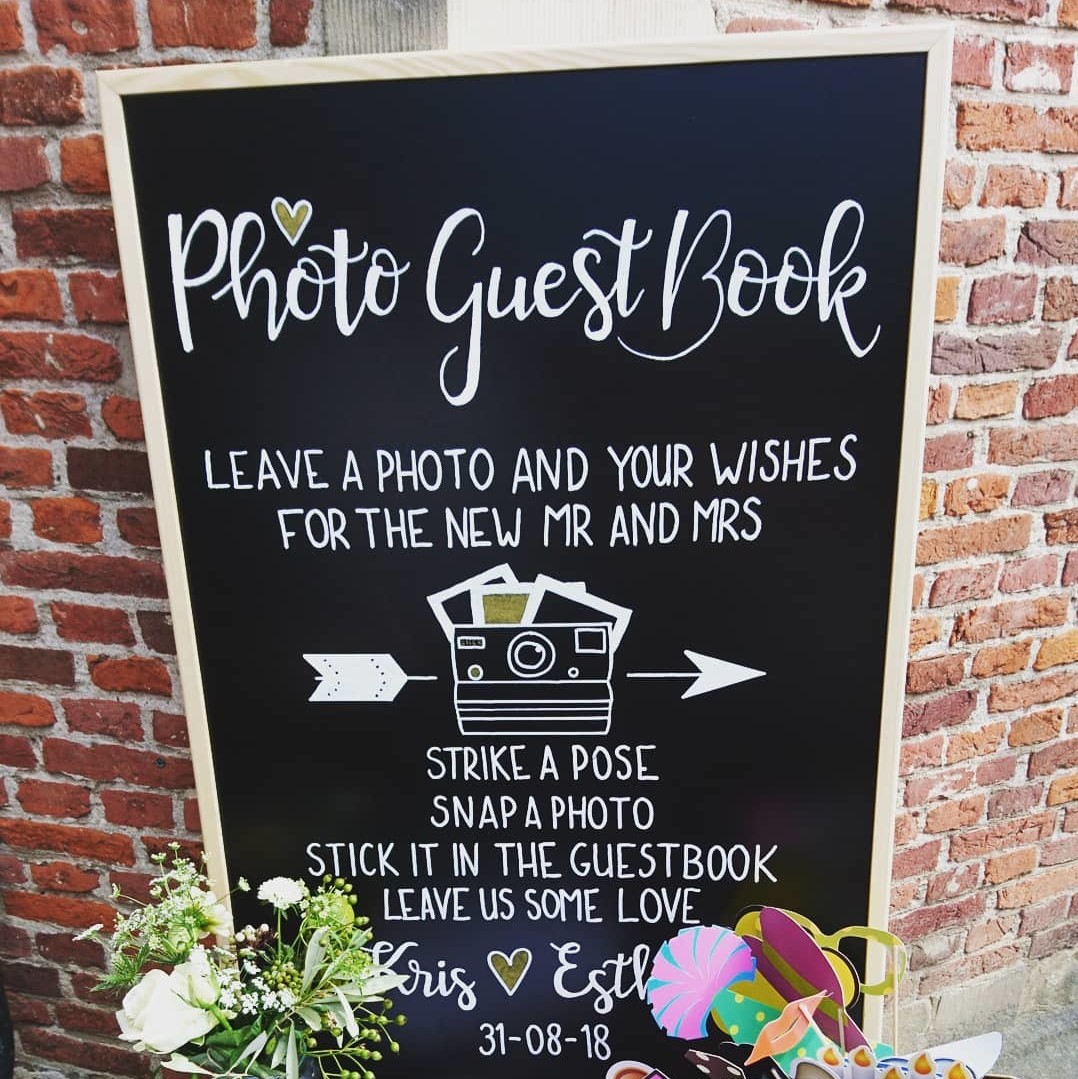 Photo Guest Book
LEAVE A PHOTO AND YOUR WISHES
FOR THE NEW MR AND MRS
STRIKE A POSE
SNAP A PHOTO
STICK IT IN THE GUESTBOOK
LEAVE US SOME LOVE
Kris
31-08-18